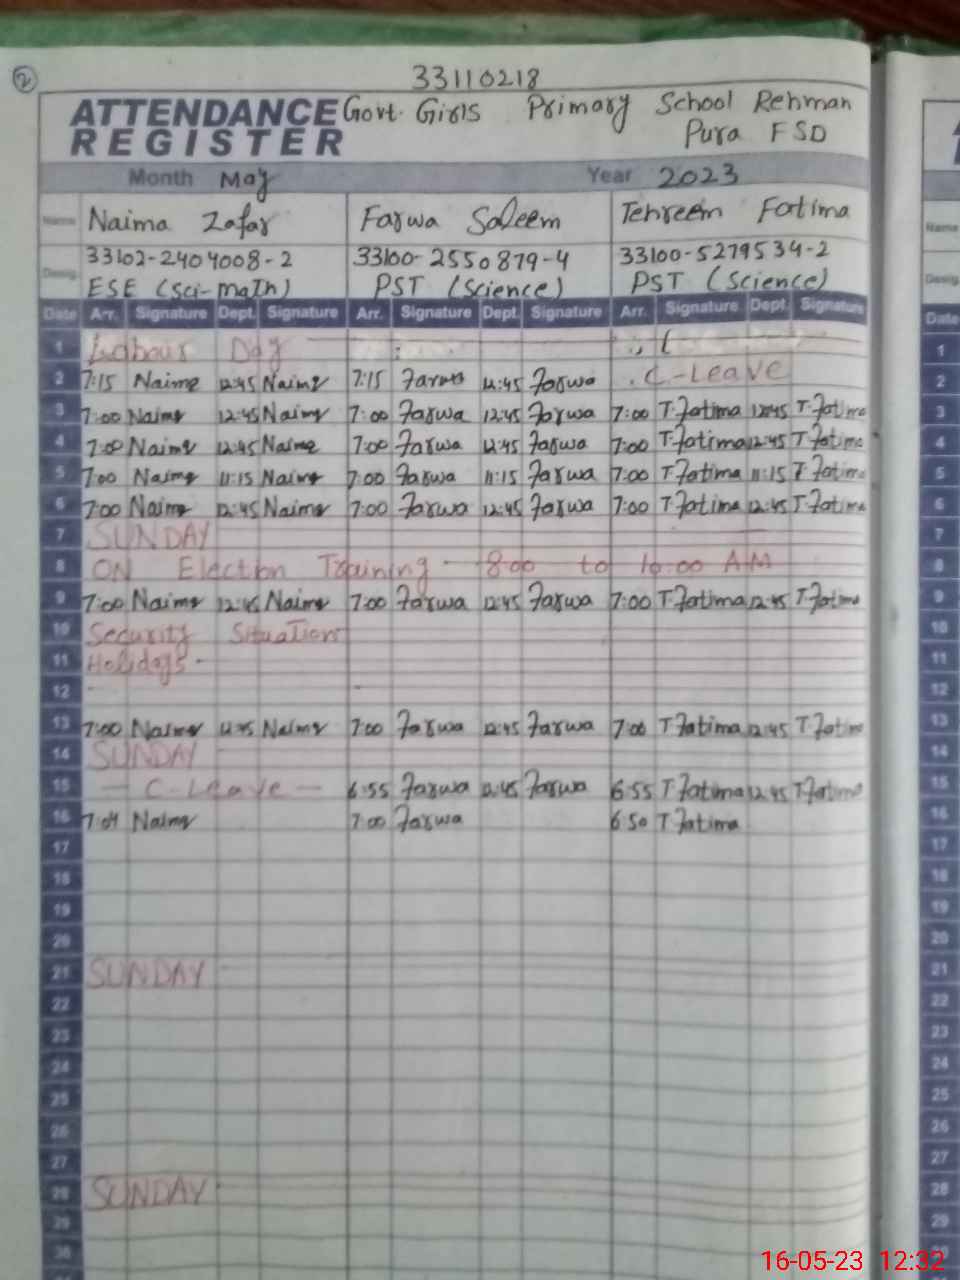 2
33110218
ATTENDANCE Govt. Girls Primary School Rehman
REGISTER Pura FSD
Month May Year 2023
Name Naima Zafar Farwa Saleem Tehreem Fatima
33102-2404008-2 33100-2550879-4 33100-5279534-2
Desig. ESE (Sci-math) PST (Science) PST (Science)
Date Arr. Signature Dept. Signature Arr. Signature Dept. Signature Arr. Signature Dept. Signature
1 Labour Day
2 7:15 Naima 12:45 Naima 7:15 Farwa 12:45 Farwa C-Leave
3 7:00 Naima 12:45 Naima 7:00 Farwa 12:45 Farwa 7:00 T.Fatima 12:45 T.Fatima
4 7:00 Naima 12:45 Naima 7:00 Farwa 12:45 Farwa 7:00 T.Fatima 12:45 T.Fatima
5 7:00 Naima 11:15 Naima 7:00 Farwa 11:15 Farwa 7:00 T.Fatima 11:15 T.Fatima
6 7:00 Naima 12:45 Naima 7:00 Farwa 12:45 Farwa 7:00 T.Fatima 12:45 T.Fatima
7 SUNDAY
8 ON Election Training - 8:00 to 10:00 A.M
9 7:00 Naima 12:45 Naima 7:00 Farwa 12:45 Farwa 7:00 T.Fatima 12:45 T.Fatima
10 Security Situation
11 Holidays -
12
13 7:00 Naima 12:45 Naima 7:00 Farwa 12:45 Farwa 7:00 T.Fatima 12:45 T.Fatima
14 SUNDAY
15 - C-Leave - 6:55 Farwa 12:45 Farwa 6:55 T.Fatima 12:45 T.Fatima
16 7:04 Naima 7:00 Farwa 6:50 T.Fatima
17
18
19
20
21 SUNDAY
22
23
24
25
26
27
28 SUNDAY
29
30
Name
Desig.
Date
1
2
3
4
5
6
7
8
9
10
11
12
13
14
15
16
17
18
19
20
21
22
23
24
25
26
27
28
29
16-05-23 12:32